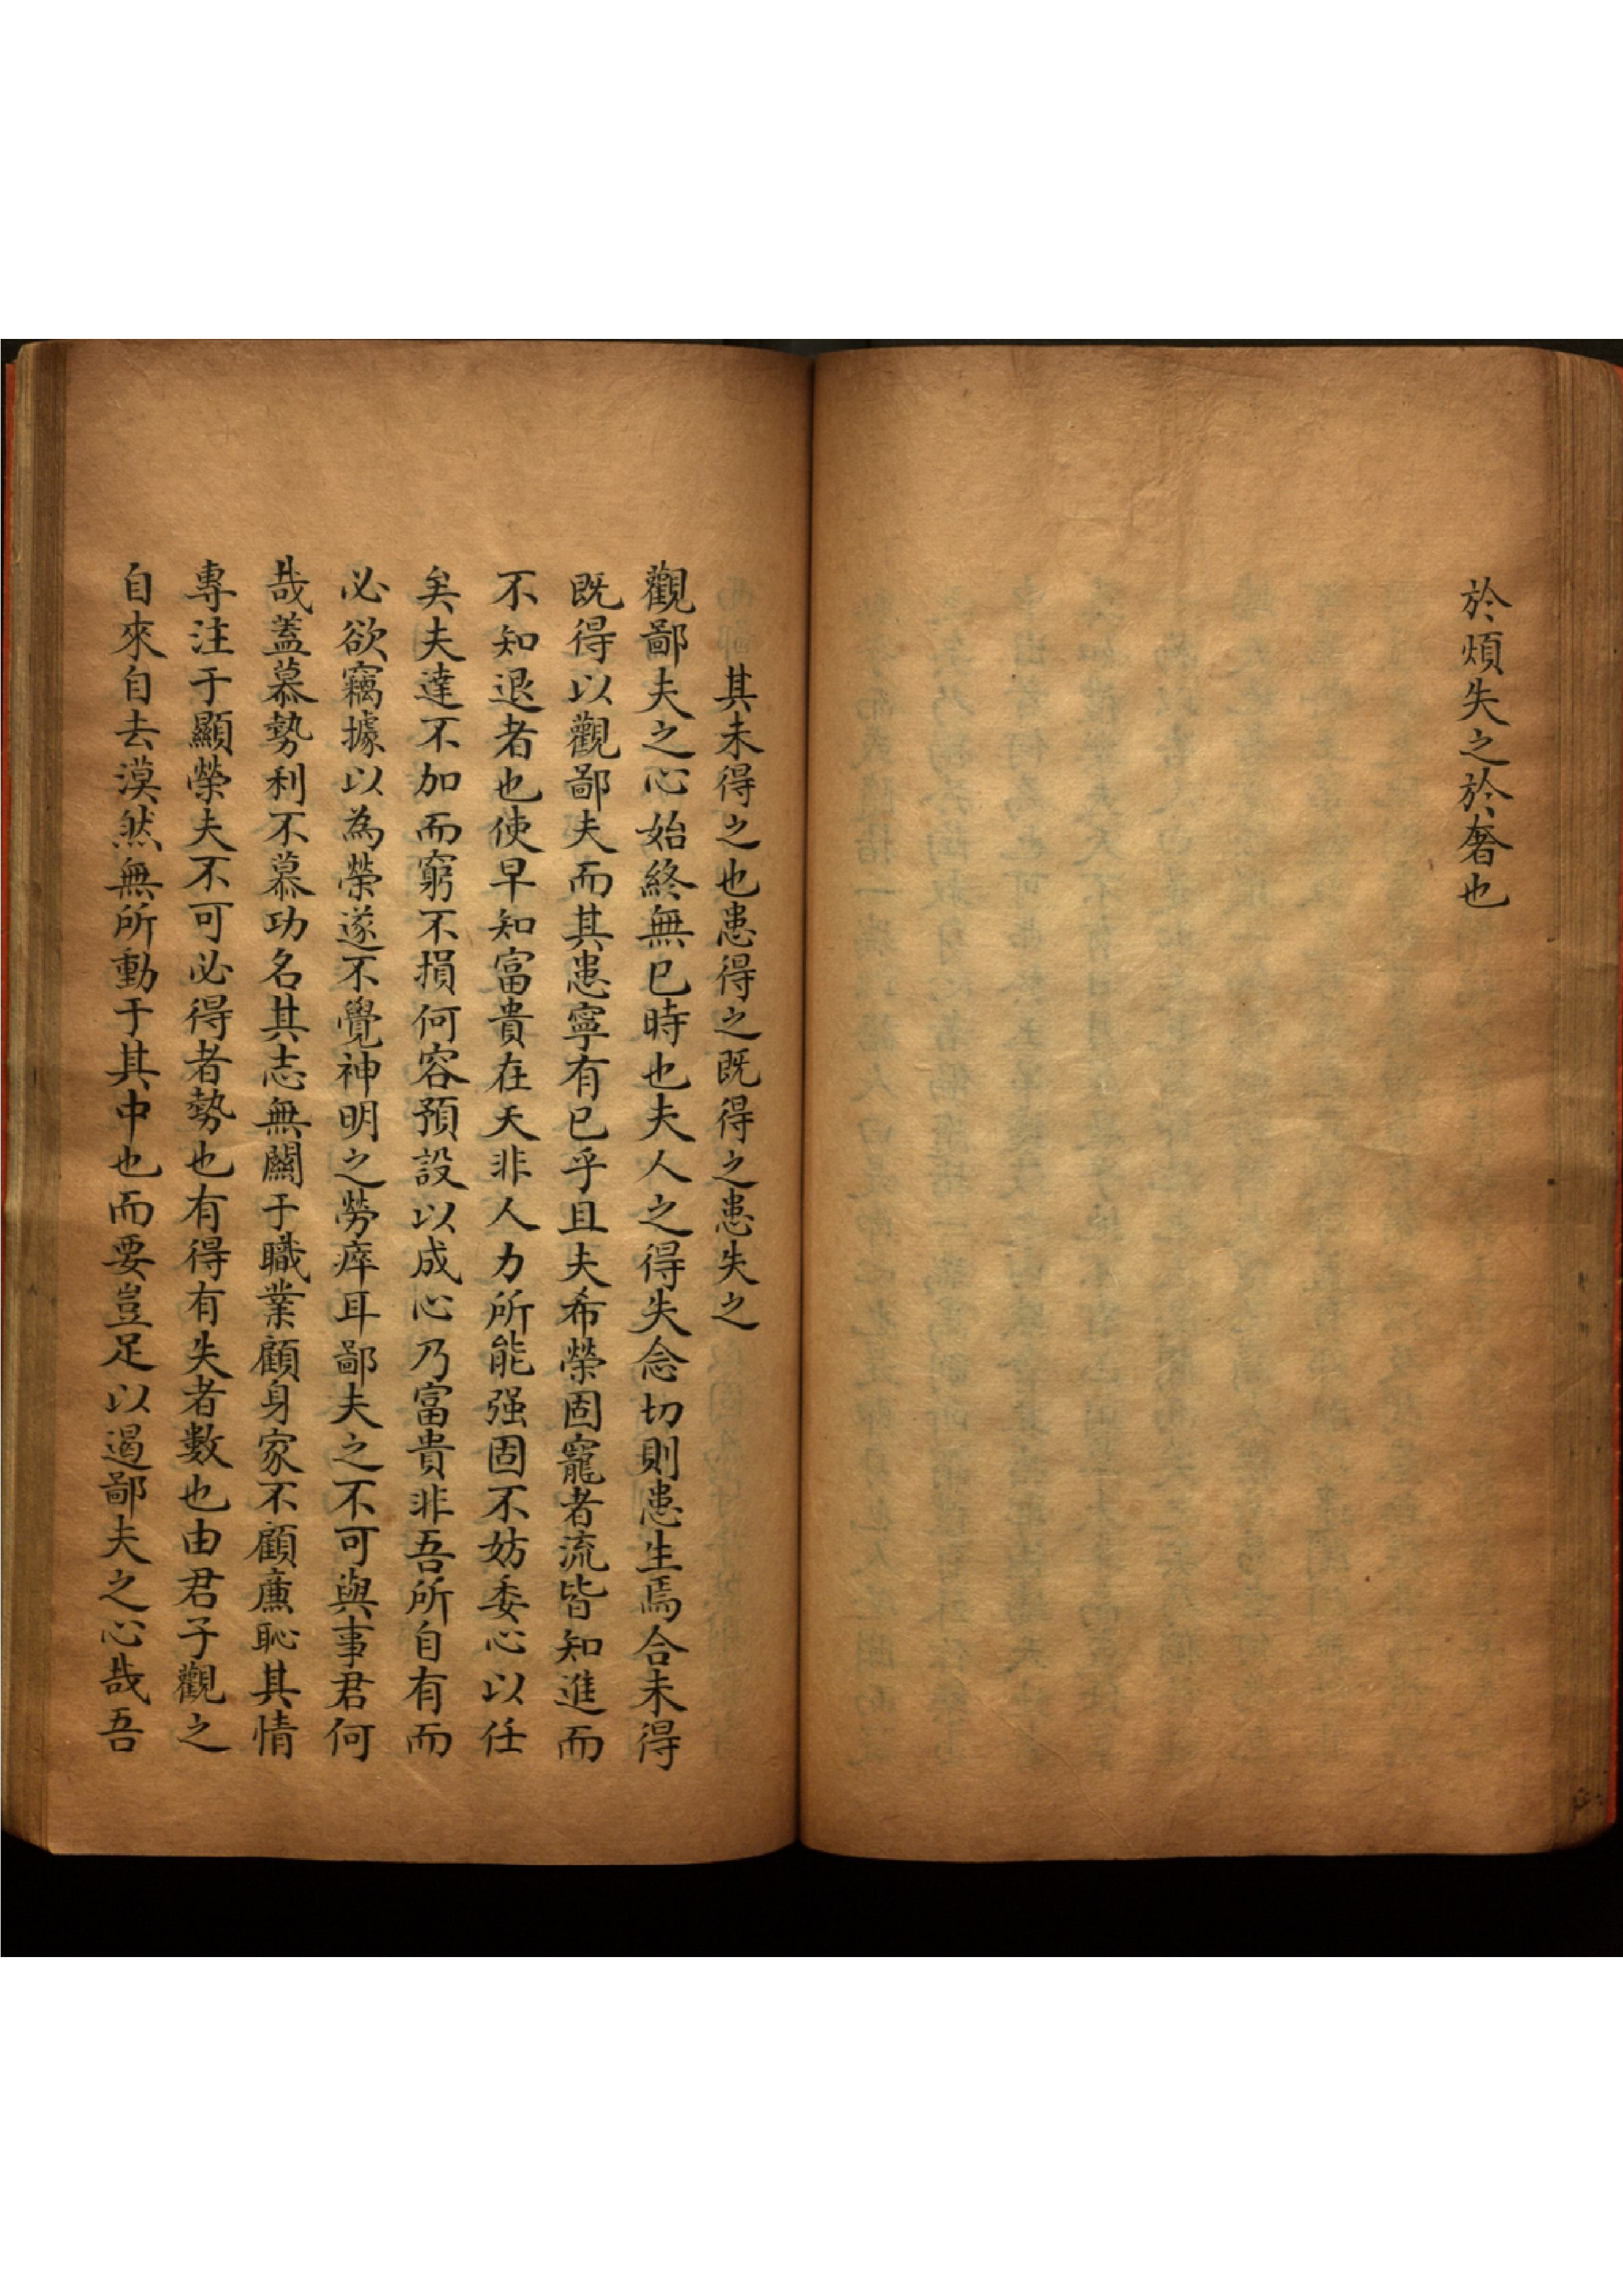 於煩失之於奢也
其未得之也患得之既得之患失之
觀鄙夫之心始終無已時也夫人之得失念切則患生焉合未得
既得以觀鄙夫而其患寧有已乎且夫希榮固寵者流皆知進而
不知退者也使早知富貴在天非人力所能强固不妨委心以任
矣夫達不加而窮不損何容預設以成心乃富貴非吾所自有而
必欲竊據以為榮遂不覺神明之勞瘁耳鄙夫之不可與事君何
哉蓋慕勢利不慕功名其志無關于職業顧身家不顧廉恥其情
專注于顯榮夫不可必得者勢也有得有失者數也由君子觀之
自來自去漠然無所動于其中也而要豈足以遏鄙夫之心哉吾